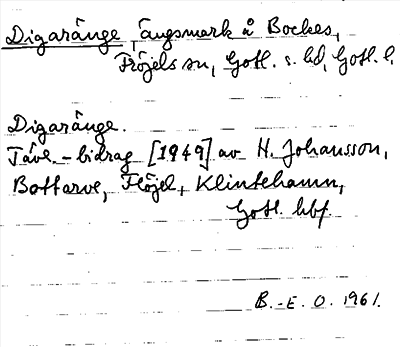 Digaränge, ängsmark å Bockes,
Fröjels sn, Gotl. s. hd, Gotl. l.
Digaränge.
Tävl.-bidrag [1949] av H. Johansson,
Bottarve, Fröjel, Klintehamn,
Gotl. hbf.
B.-E. O. 1961.